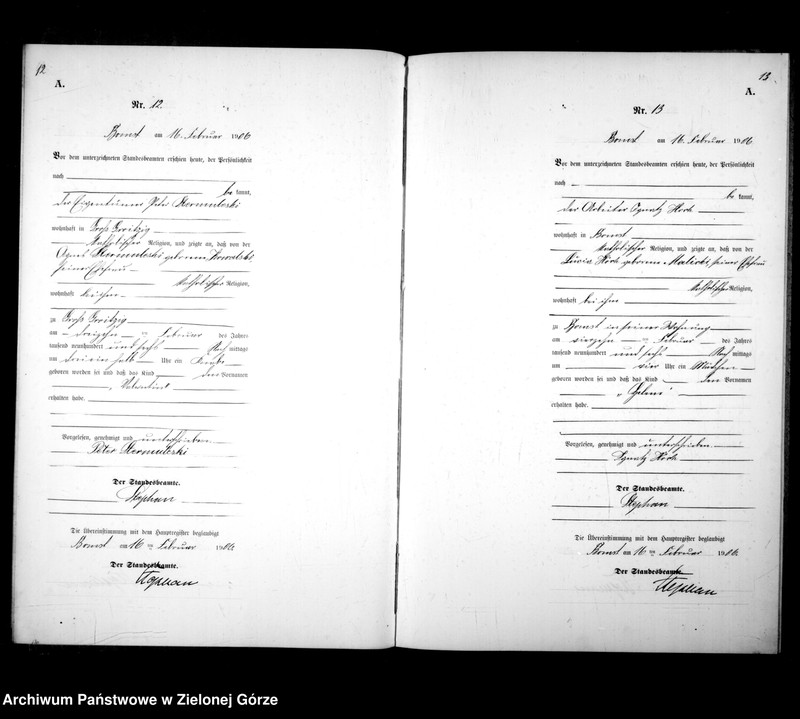 12
A.
Nr. 12
Bomst am 16. Februar 1906
Vor dem unterzeichneten Standesbeamten erschien heute, der Persönlichkeit
nach
be kannt,
der Eigentümer Peter
wohnhaft in Groß
katholischer Religion, und zeigte an, daß von der
geborene
seiner Ehefrau
katholischer Religion,
wohnhaft bei ihm
zu Groß
am dreizehn ten Februar des Jahres
tausend neunhundert und sechs Nach mittags
um halb Uhr ein Knabe
geboren worden sei und daß das Kind den Vornamen
„Valentin"
erhalten habe.
Vorgelesen, genehmigt und unterschrieben
Peter
Der Standesbeamte.
Stephan
Die Übereinstimmung mit dem Hauptregister beglaubigt
Bomst am 16 ten Februar 1906
Der Standesbeamte.
Stephan
13
A.
Nr. 13
Bomst am 16. Februar 1906
Vor dem unterzeichneten Standesbeamten erschien heute, der Persönlichkeit
nach
be kannt,
der Arbeiter Ignatz
wohnhaft in Bomst
katholischer Religion, und zeigte an, daß von der
geborene seiner Ehefrau
katholischer Religion,
wohnhaft bei ihm
zu Bomst in seiner Wohnung
am vierzehn ten Februar des Jahres
tausend neunhundert und sechs Nach mittags
um vier Uhr ein Mädchen
geboren worden sei und daß das Kind den Vornamen
„Helene"
erhalten habe.
Vorgelesen, genehmigt und unterschrieben
Ignatz
Der Standesbeamte.
Stephan
Die Übereinstimmung mit dem Hauptregister beglaubigt
Bomst am 16 ten Februar 1906
Der Standesbeamte
Stephan
Archiwum Państwowe w Zielonej Górze